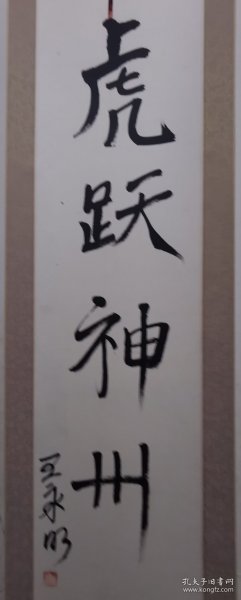 虎跃神州
王永明
孔夫子旧书网
www.kongfz.com